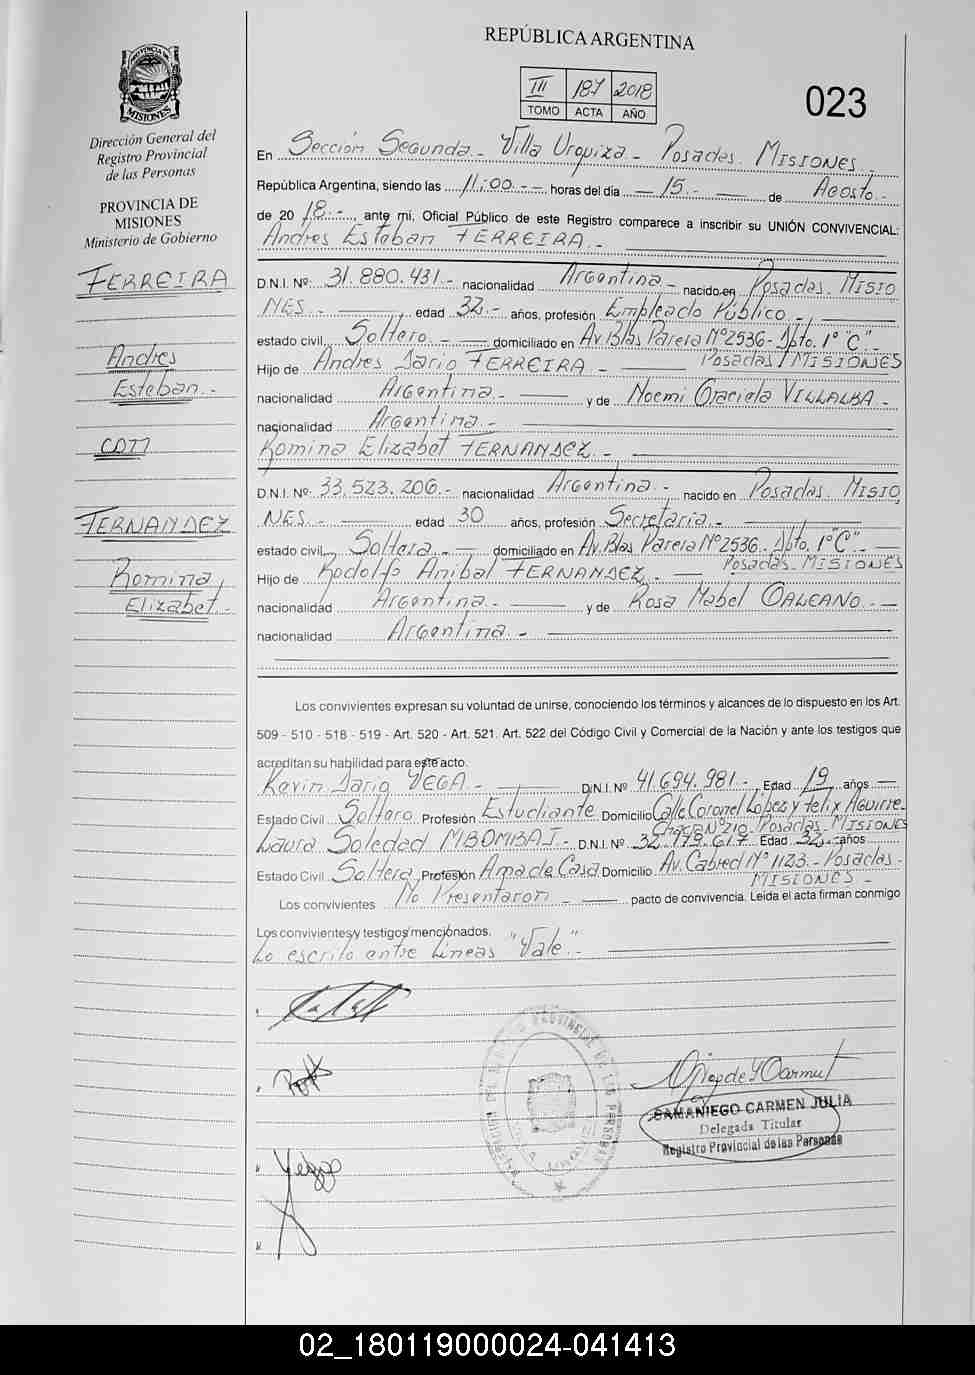 REPÚBLICA ARGENTINA
PROVINCIA DE
MISIONES
Dirección General del
Registro Provincial
de las Personas
PROVINCIA DE
MISIONES
Ministerio de Gobierno
FERREIRA
Andres
Esteban.-
con
FERNANDEZ
Romina
Elizabet.-
III 187 2018
TOMO ACTA AÑO
023
En Sección Segunda - Villa Urquiza - Posadas. MISIONES.-
República Argentina, siendo las 11:00.- - horas del día - 15.- - de Agosto.-
de 20 18.- , ante mi, Oficial Público de este Registro comparece a inscribir su UNIÓN CONVIVENCIAL:
Andres Esteban FERREIRA.-
D.N.I. Nº: 31.880.431.- nacionalidad Argentina.- nacido en Posadas. MISIO
NES.- edad 32.- años, profesión Empleado Público.-
estado civil Soltero.- - domiciliado en Av. Blas Parera Nº 2536- Dpto. 1º "C".-
Posadas/MISIONES
Hijo de Andres Dario FERREIRA.-
nacionalidad Argentina.- y de Noemi Graciela VILLALBA.-
nacionalidad Argentina.-
Romina Elizabet FERNANDEZ.-
D.N.I. Nº: 33.523.206.- nacionalidad Argentina.- nacido en Posadas. MISIO
NES.- edad 30 años, profesión Secretaria.-
estado civil Soltera.- - domiciliado en Av. Blas Parera Nº 2536.- Dpto. 1º "C".-
Posadas.- MISIONES
Hijo de Rodolfo Anibal FERNANDEZ.-
nacionalidad Argentina.- y de Rosa Mabel GALEANO.-
nacionalidad Argentina.-
Los convivientes expresan su voluntad de unirse, conociendo los términos y alcances de lo dispuesto en los Art.
509 - 510 - 518 - 519 - Art. 520 - Art. 521. Art. 522 del Código Civil y Comercial de la Nación y ante los testigos que
acreditan su habilidad para este acto.
Kevin Dario VEGA.- D.N.I. Nº 41.694.981.- Edad 19 años
Estado Civil Soltero Profesión Estudiante Domicilio Calle Coronel López y Felix Aguirre
Chacra Nº 210. Posadas. MISIONES
Laura Soledad MBOMBAJ.- D.N.I. Nº 32.779.617 Edad 32.- años
Estado Civil Soltera Profesión Ama de Casa Domicilio Av. Cabred Nº 1123.- Posadas.-
MISIONES.-
Los convivientes No Presentaron.- pacto de convivencia. Leida el acta firman conmigo
Los convivientes y testigos mencionados.
Lo escrito entre lineas "Vale".-
SAMANIEGO CARMEN JULIA
Delegada Titular
Registro Provincial de las Personas
02_180119000024-041413